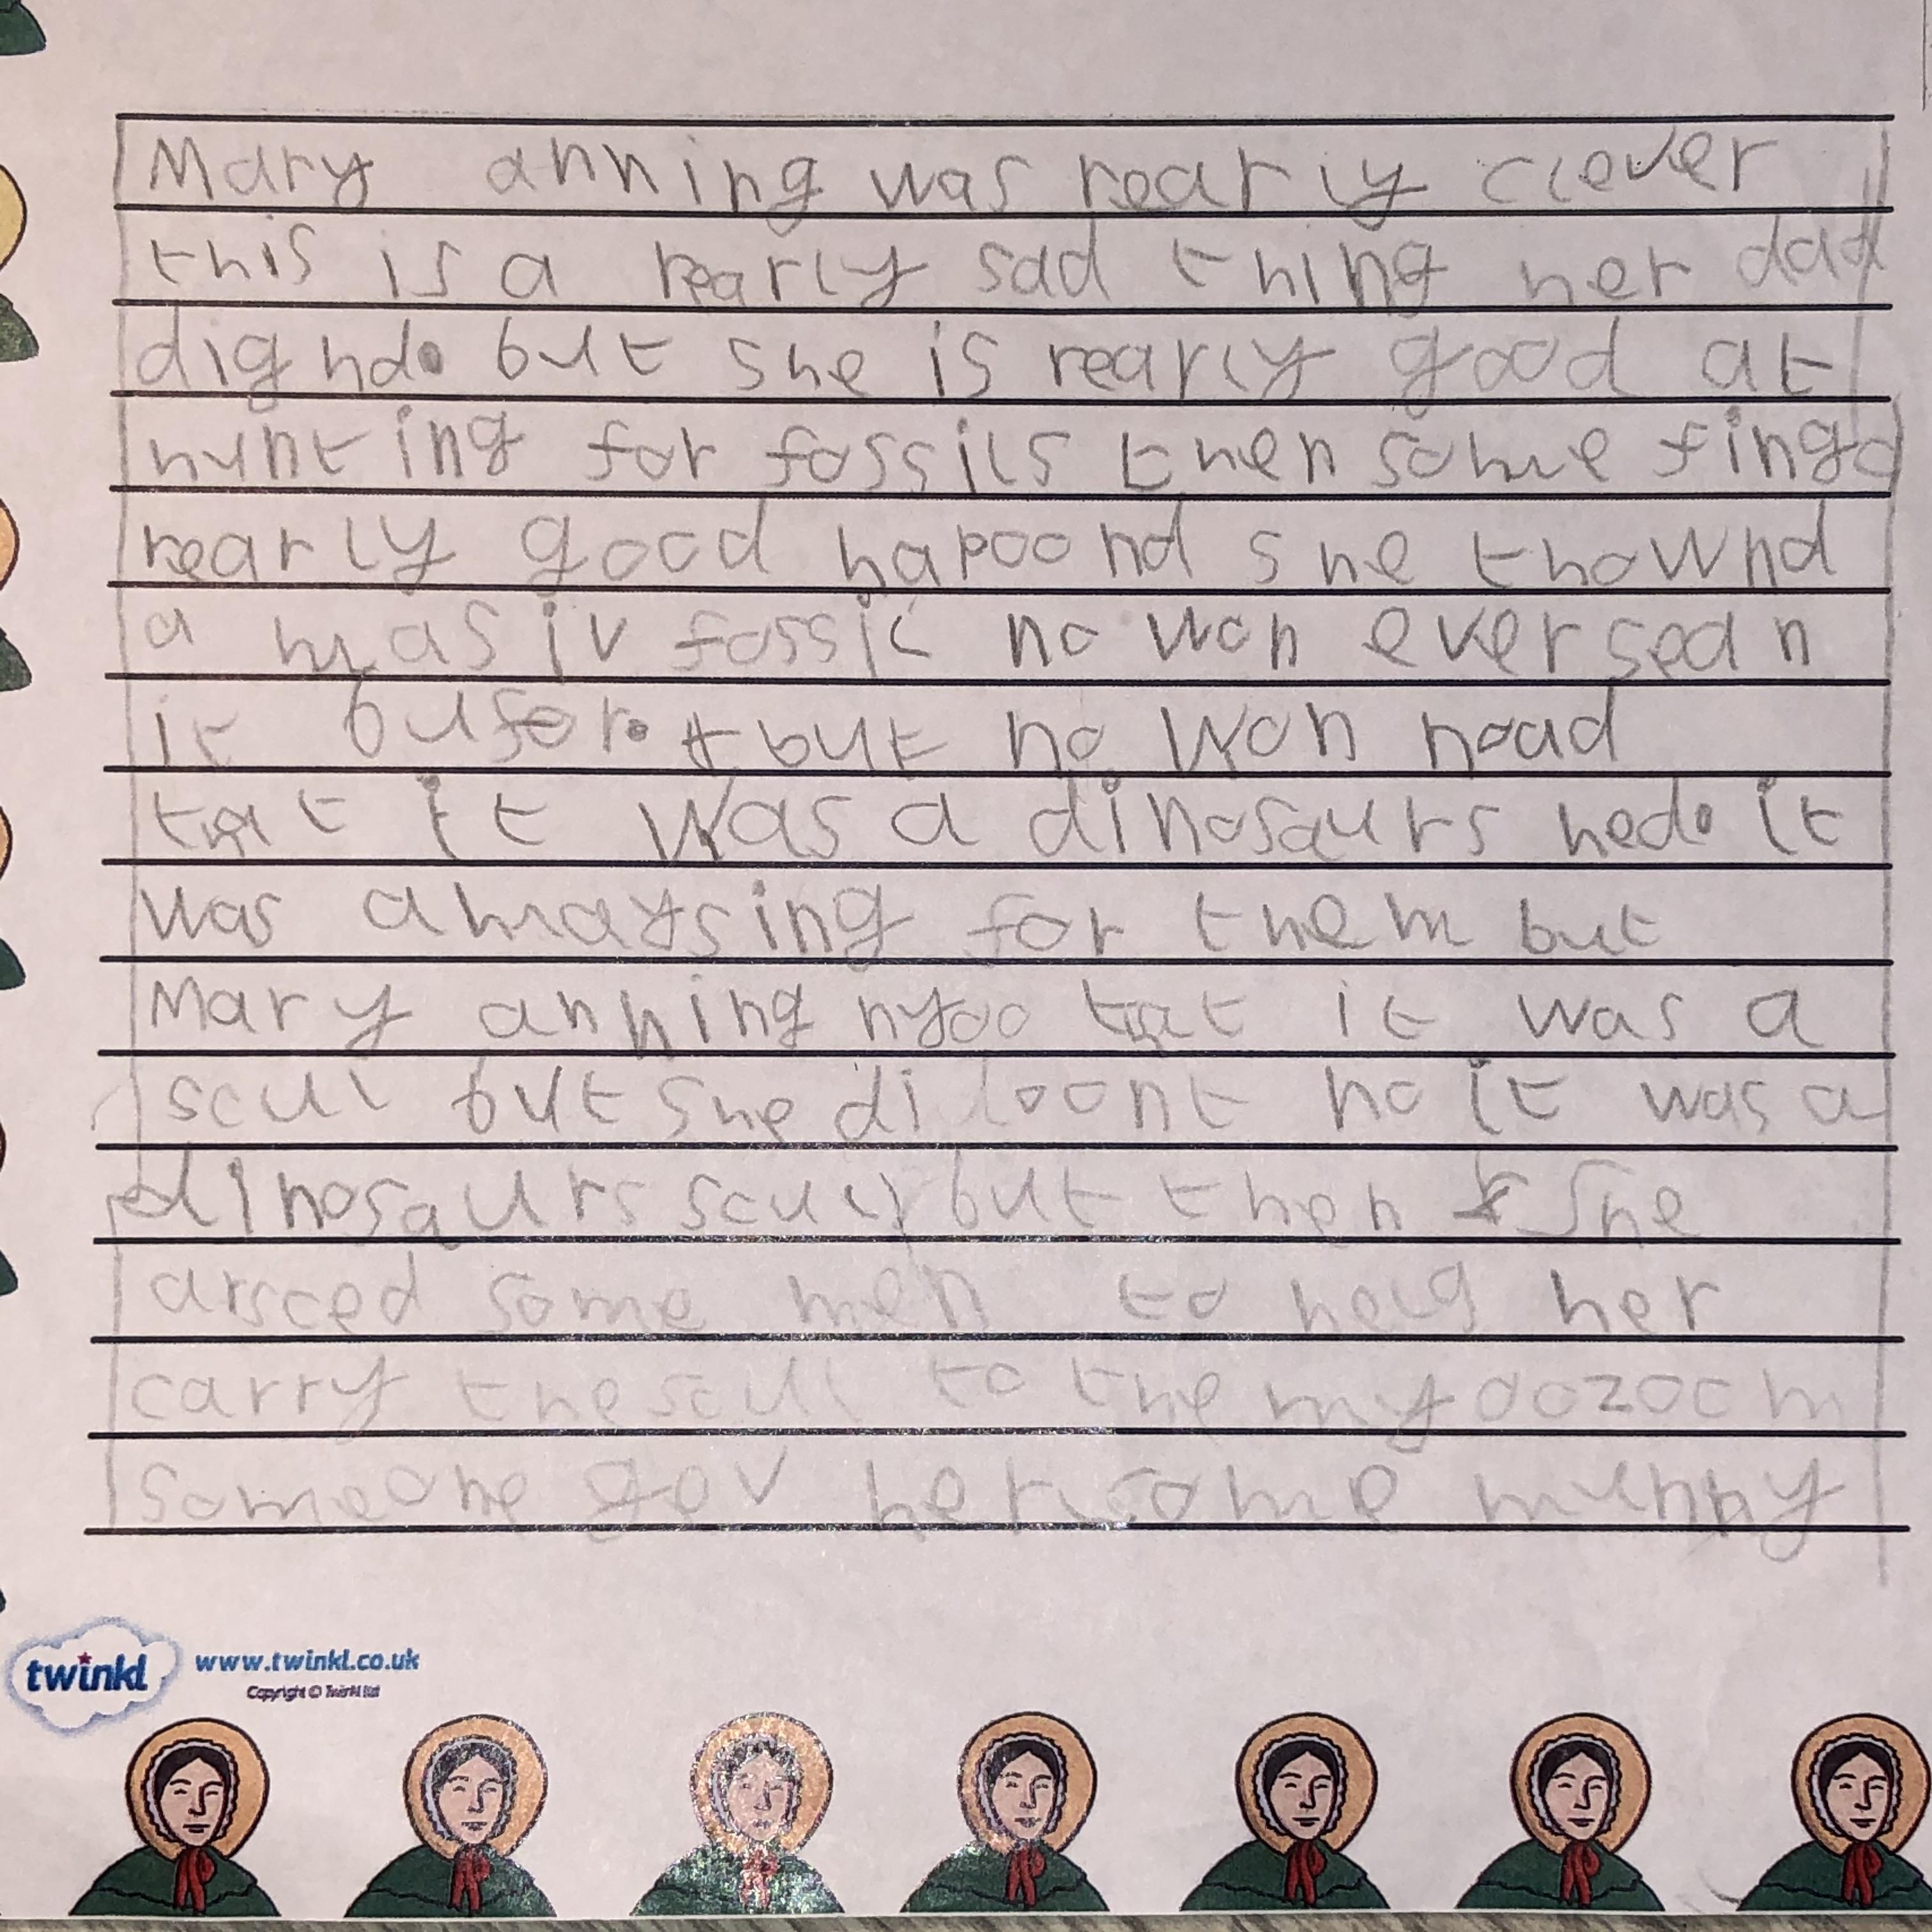 Mary anning was rearly clever
this is a rearly sad thing her dad
dignd. but she is rearly good at
hunting for fossils then some fing
rearly good hapoond she thownd
a masiv fossil no won ever sean
it bufor. but no won noad
that it was a dinosaurs hed. it
was amaysing for them but
Mary anning nyoo that it was a
scul but she di oont no it was a
dinosaurs scul but then she
arsced some men to help her
carry the scul to the myoozoom
someone gev her some munny
twinkl www.twinkl.co.uk
Copyright © Twinkl Ltd